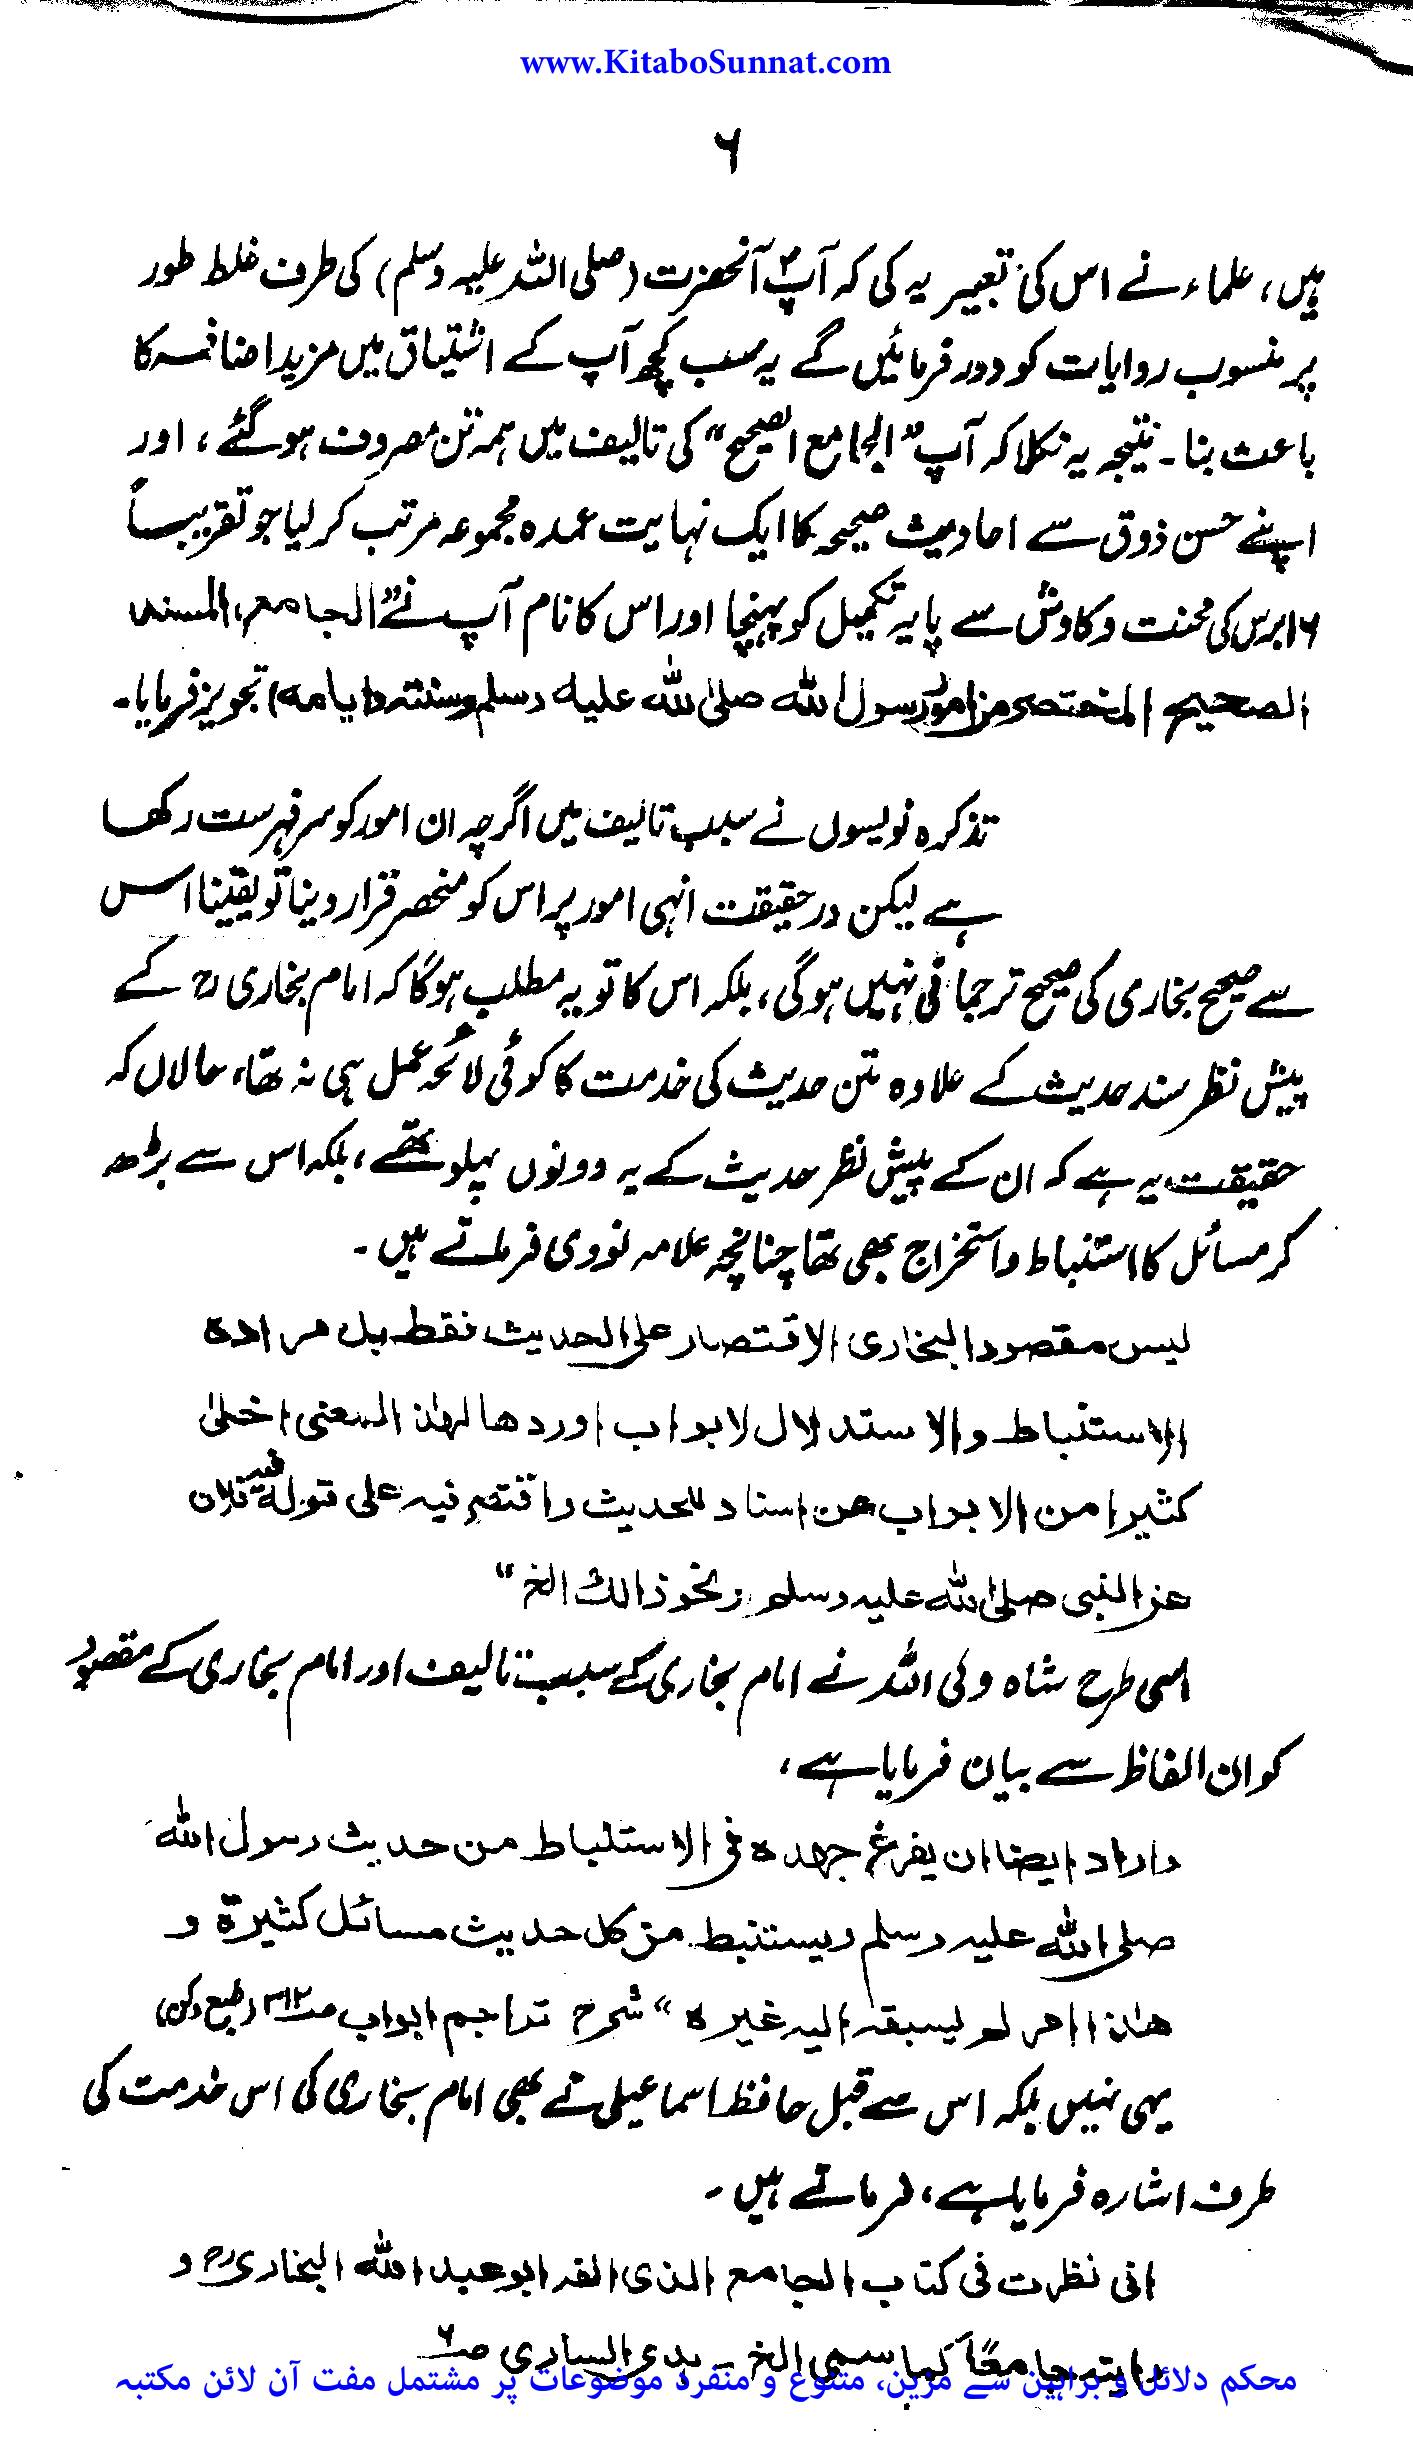 www.KitaboSunnat.com
۶
ہیں، علماء نے اس کی تعبیر یہ کی کہ آپؐ آنحضرت (صلی اللہ علیہ وسلم) کی طرف غلط طور
پر منسوب روایات کو دور فرمائیں گے یہ سب کچھ آپ کے اشتیاق میں مزید اضافہ کا
باعث بنا۔ نتیجہ یہ نکلا کہ آپ "الجامع الصحیح" کی تالیف میں ہمہ تن مصروف ہوگئے، اور
اپنے حسن ذوق سے احادیث صحیحہ کا ایک نہایت عمدہ مجموعہ مرتب کر لیا جو تقریباً
۱۶ برس کی محنت و کاوش سے پایہ تکمیل کو پہنچا اور اس کا نام آپ نے "الجامع، المسند
الصحیح المختصر من امور رسول اللہ صلی اللہ علیہ وسلم وسننہ وایامہ) تجویز فرمایا۔
تذکرہ نویسوں نے سبب تالیف میں اگرچہ ان امور کو سرفہرست رکھا
ہے لیکن درحقیقت انہی امور پر اس کو منحصر قرار دینا تو یقینا اس
سے صحیح بخاری کی صحیح ترجمانی نہیں ہوگی، بلکہ اس کا تو یہ مطلب ہوگا کہ امام بخاری رح کے
پیش نظر سند حدیث کے علاوہ متن حدیث کی خدمت کا کوئی لائحہ عمل ہی نہ تھا، حالاں کہ
حقیقت یہ ہے کہ ان کے پیش نظر حدیث کے یہ دونوں پہلو تھے، بلکہ اس سے بڑھ
کر مسائل کا استنباط واستخراج بھی تھا چنانچہ علامہ نووی فرماتے ہیں۔
لیس مقصود البخاری الاقتصار علی الحدیث فقط بل مرادہ
الاستنباط والاستدلال لابواب اوردھا لھذا المعنی اخلیٰ
کثیرا من الابواب عن اسناد للحدیث واقتصر فیہ علی قولہ فیہ فلان
عن النبی صلی اللہ علیہ وسلم ونحو ذالک الخ"
اسی طرح شاہ ولی اللہ نے امام بخاری کے سبب تالیف اور امام بخاری کے مقصود
کو ان الفاظ سے بیان فرمایا ہے،
واراد ایضا ان یفرغ جھدہ فی الاستنباط من حدیث رسول اللہ
صلی اللہ علیہ وسلم ویستنبط من کل حدیث مسائل کثیرۃ و
ھذا امر لم یسبقہ الیہ غیرہ" شرح تراجم ابواب ص۳۱۲ (طبع دکن)
یہی نہیں بلکہ اس سے قبل حافظ اسماعیلی نے بھی امام بخاری کی اس خدمت کی
طرف اشارہ فرمایا ہے، فرماتے ہیں۔
انی نظرت فی کتاب الجامع الذی الفہ ابو عبد اللہ البخاری رح و
رایتہ جامعاً کما سمی الخ - ہدی الساری ص۶
محکم دلائل و براہین سے مزین، متنوع و منفرد موضوعات پر مشتمل مفت آن لائن مکتبہ